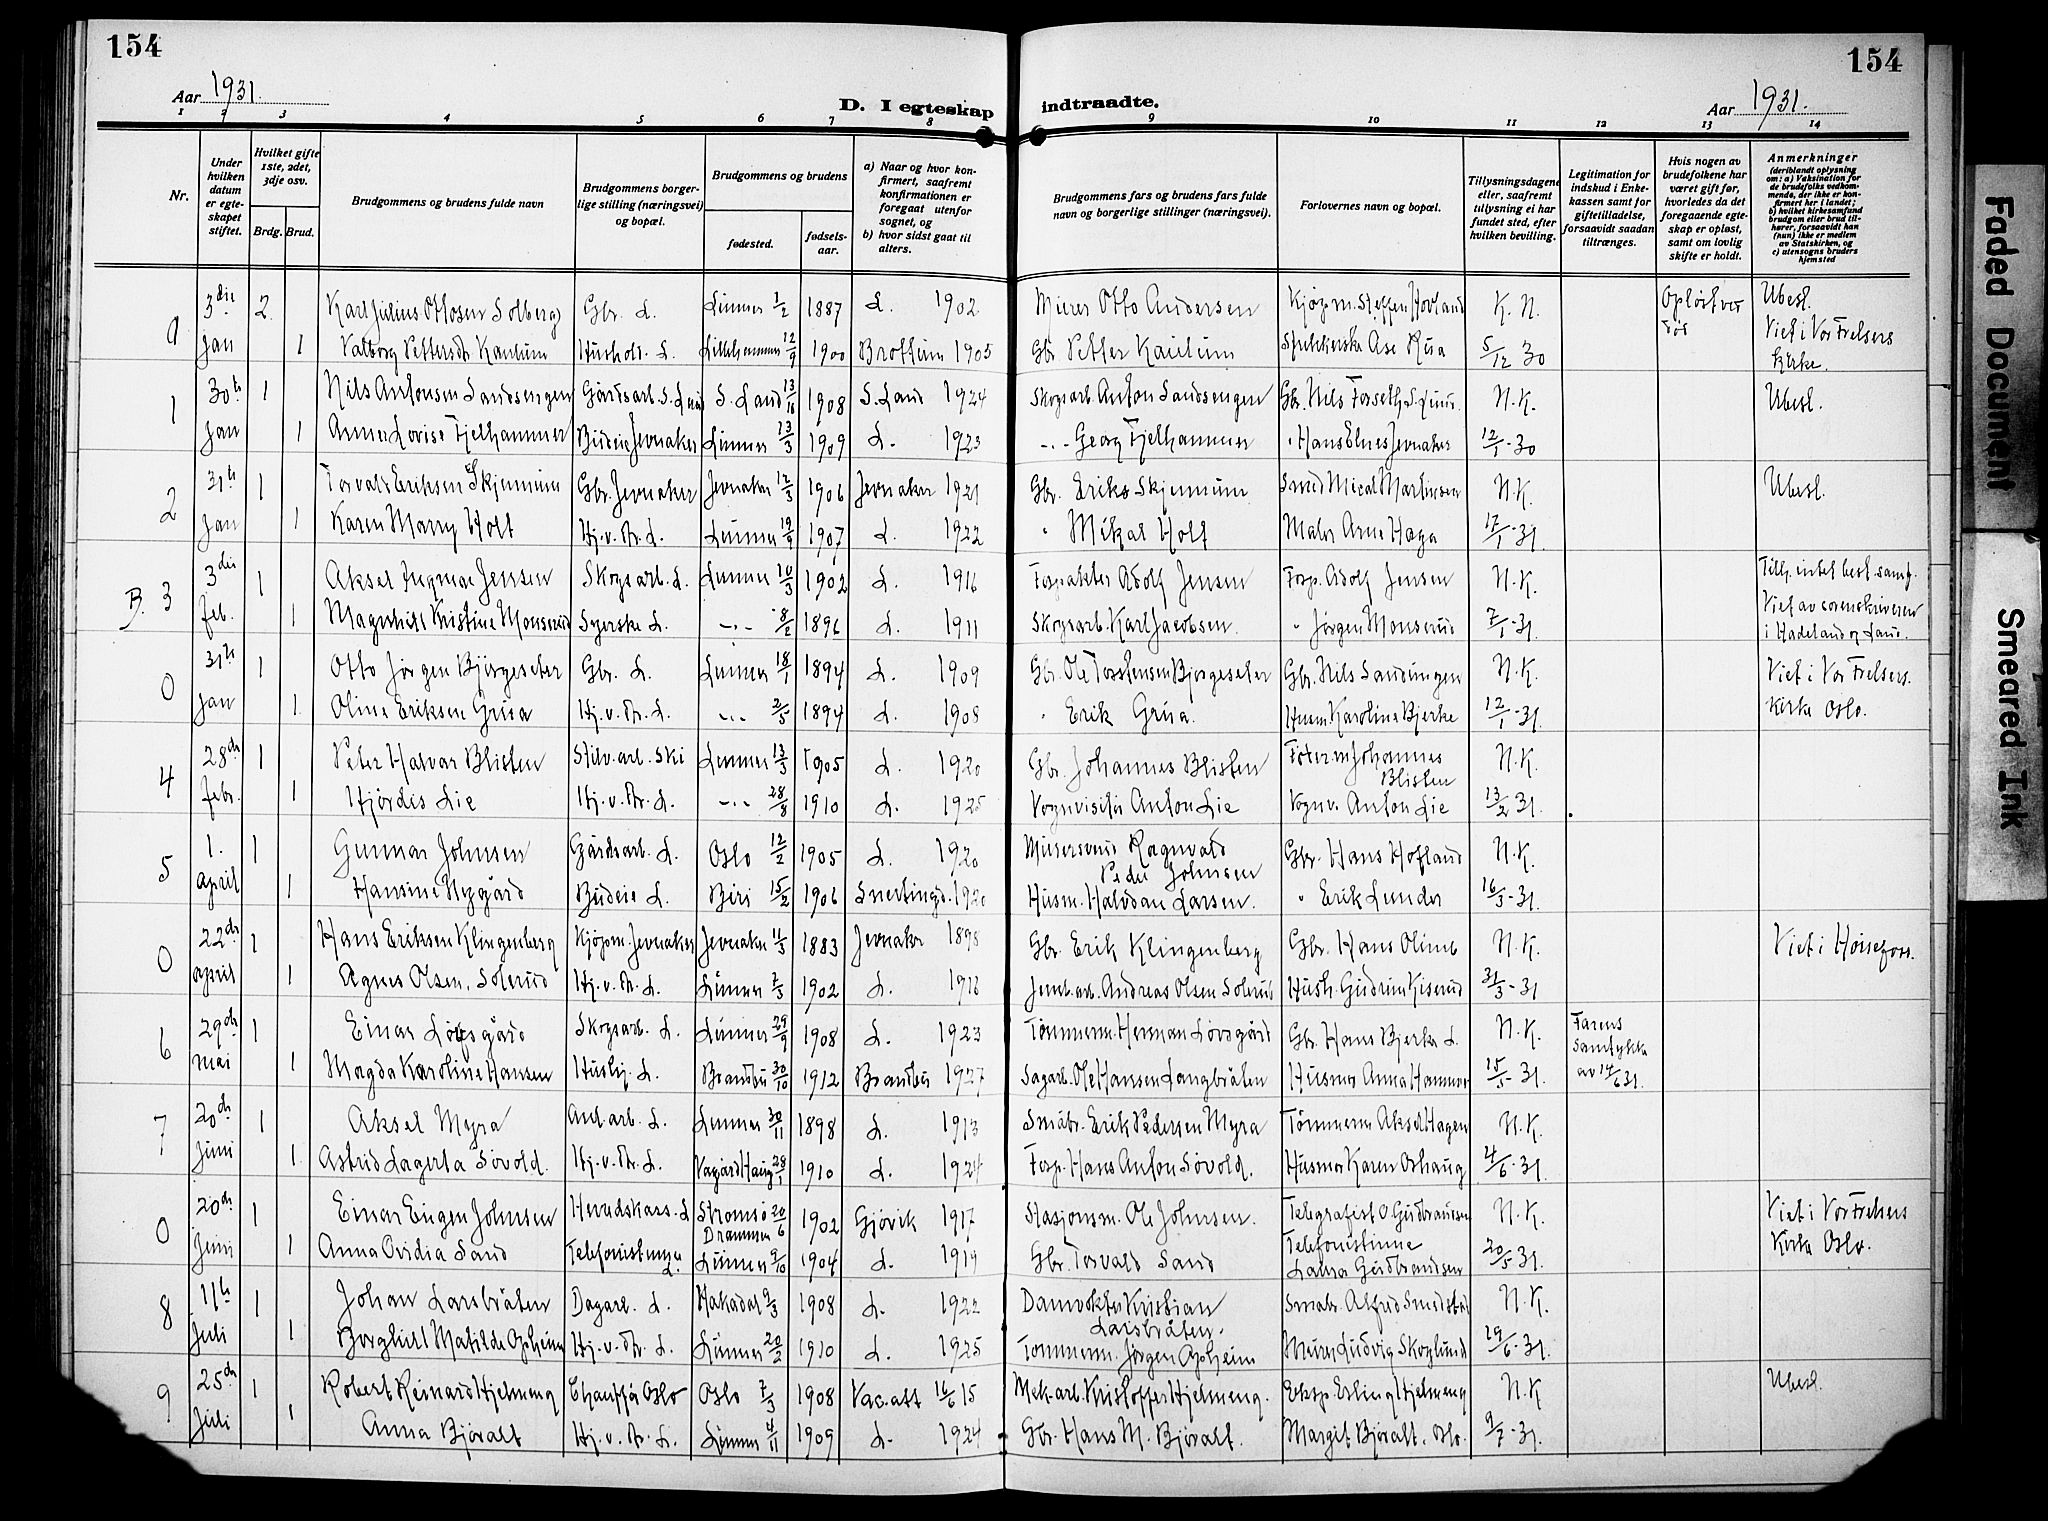 154
154
Aar 1931.
D. I egteskap indtraadte.
Aar 1931.
1 2 3 4 5 6 7 8 9 10 11 12 13 14
Nr.
Under hvilken datum er egte- skapet stiftet.
Hvilket gifte 1ste, 2det, 3dje osv.
Brdg. Brud.
Brudgommens og brudens fulde navn
Brudgommens borger- lige stilling (næringsvei) og bopæl.
Brudgommens og brudens
fødested.
fødsels- aar.
a) Naar og hvor kon- firmert, saafremt konfirmationen er foregaat utenfor sognet, og
b) hvor sidst gaat til alters.
Brudgommens fars og brudens fars fulde navn og borgerlige stillinger (næringsvei).
Forlovernes navn og bopæl.
Tillysningsdagene eller, saafremt tillysning ei har fundet sted, efter hvilken bevilling.
Legitimation for indskud i Enke- kassen samt for giftetilladelse, forsaavidt saadan tiltrænges.
Hvis nogen av brudefolkene har været gift før, hvorledes da det foregaaende egte- skap er opløst, samt om lovlig skifte er holdt.
Anmerkninger (deriblandt oplysning om: a) Vaksination for de brudefolks vedkom- mende, der ikke er kon- firmert her i landet; b) hvilket kirkesamfund brudgom eller brud til- hører, forsaavidt han (hun) ikke er medlem av Statskirken, og c) utensogns bruders hjemsted
3die 2. Karl Julius Ottosen Solberg Gbr. L. Lunner 1/2 1887 L. 1902 Murer Otto Andersen Kjøpm. Steffen Hovland K. N. Opløst ved død Ubesl.
jan 1 Valborg Pettersdt Kanlum Hushold. L. Lillehammer 12/9 1900 Brøttum 1905 Gbr Petter Kaulum Ase Rua 5/12 30 Viet i Vor Frelsers Kirke.
1 30te 1 Nils Antonsen Sandsengen Gårdsarb. S. Land S. Land 13/16 1908 S. Land 1924 Skogsarb. Anton Sandsengen Gbr. Nils Forseth S. Land. N. K. Ubesl.
Jan 1 Anna Lovise Fjelhammer Budeie Jevnaker Lunner 13/3 1909 L. 1923 -"- Georg Fjelhammer " Hans Elnes Jevnaker 12/1-30
2 31te 1 Torvald Eriksen Skjennum Gbr. Jevnaker Jevnaker 12/3 1906 Jevnaker 1921 Gbr. Eriks Skjennum Smed Mical Martinsen N. K. Ubesl.
Jan 1 Karen Marry Holt Hj. v. Mr. L. Lunner 19/9 1907 L. 1922 " Mikal Holt Maler Arne Haga 17/1-31.
B. 3 3die 1 Aksel Ingmar Jensen Skogsarb. L. Lunner 10/3 1902 L. 1916 Forpakter Adolf Jensen Forp. Adolf Jensen N. K. Tilh. intet best. samf.
feb. 1 Magnhild Kristine Monserud Syerske L. -"- 8/2 1896 L. 1911 Skogsarb. Karl Jacobsen. " Jørgen Monserud 7/1-31. Viet av sorenskriveren i Hadeland og Land.
0 31te 1 Otto Jørgen Bjørgeseter Gbr. L. Lunner 18/1 1894 L. 1909 Gbr. Ole Torstensen Bjørgeseter Gbr. Nils Sandungen N. K. Viet i Vor Frelsers
Jan 1. Oline Eriksen Grua Hj. v. Mr. L. -"- 2/5 1894 L. 1908 " Erik Grua. Husm Karoline Bjerke 12/1-31. Kirke Oslo.
4 28de 1 Peter Halvar Blisten Stilv. arb. Ski Lunner 13/3 1905 L. 1920 Gbr. Johannes Blisten Johannes Blisten N. K.
febr. 1 Hjørdis Lie Hj. v. Mr. L. -"- 28/8 1910 L. 1925 Vognvisitør Anton Lie Vognv. Anton Lie 13/2 31.
5 1. 1 Gunnar Johnsen Gårdsarb. L. Oslo 12/2 1905 L. 1920 Ragnvald Peder Johnsen Gbr. Hans Hofland N. K.
april 1 Hansine Nygård Budeie L. Biri 15/2 1906 Snertingd. 1920 Husm. Halvdan Larsen. " Erik Lunder 16/3-31.
0 22de 1 Hans Eriksen Klingenberg Kjøpm. Jevnaker Jevnaker 11/3 1883 Jevnaker 1898 Gbr. Erik Klingenberg Gbr. Hans Olimb N. K. Viet i Hønefoss.
april 1 Agnes Olsen, Solerud Hj. v. Mr. L. Lunner 7/3 1902 L. 1916 Jernb. arb. Andreas Olsen Solerud Hush. Gudrun Kiserud 31/3-31
6 29de 1 Einar Løvsgård Skogsarb. L. Lunner 29/9 1908 L. 1923 Tømmerm. Herman Løvsgård Gbr. Hans Bjerke L. N. K. Farens samtykke
mai 1 Magda Karoline Hansen Hushj. L. Brandbu 30/10 1912 Brandbu 1927 Sagarb. Ole Hansen Langbråten Husmor Anna Hammer 15/5-31. av 14/6 31.
7 20de 1 Aksel Myra Anl. arb. L. Lunner 30/11 1898 L. 1913 Småbr. Erik Pedersen Myra Tømmerm Aksel Hagen N. K.
Juni 1. Astrid Lagerta Søvold. Hj. v. Mr. L. 28/1 1910 L. 1924 Forp. Hans Anton Søvold. Husmor Karen Oshaug 4/6-31.
0 20de 1 Einar Eugen Johnsen Heredskass. L Strømsø Drammen 20/6 1902 Gjøvik 1917 Stasjonsm. Ole Johnsen. Telegrafist O Gudbrandsen N. K. Viet i Vor Frelsers
Juni 1 Anna Ovidia Sand Telefonistinne L. Lunner 9/10 1904 L. 1919 Gbr. Torvald Sand Telefonistinne Laura Gudbrandsen 20/5-31. Kirke Oslo.
8 11te 1 Johan Larsbråten Dagarb. L. Hakadal 9/3 1908 L. 1922 Damvokter Kristian Larsbråten. Småbr. Alfrid Smedstad N. K.
Juli 1 Borghild Matilde Opheim Hj. v. Mr. L. Lunner 20/2 1910 L. 1925 Tømmerm. Jørgen Opheim Murer Ludvig Skoglund 19/6-31.
9 25de 1 Robert Reinard Hjelmeng Chauffør Oslo Oslo 7/3 1908 Vac. att 16/6 15 Mek. arb. Kristoffer Hjelmeng. Eksp. Erling Hjelmeng N. K Ubesl.
Juli 1 Anna Bjøralt Hj. v. Mr. L. Lunner 4/11 1909 L. 1924 Gbr. Hans M. Bjøralt. Margit Bjøralt. Oslo. 9/7-31.
Faded Document
Smeared Ink